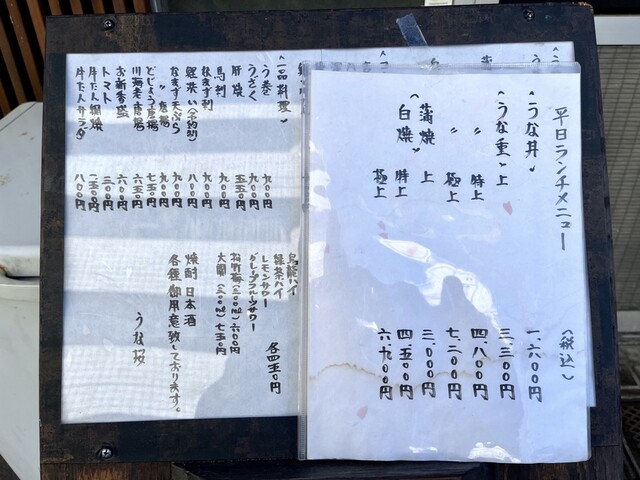 平日ランチメニュー (税込)
〈うな丼〉 一、六〇〇円
〈うな重〉 上 三、三〇〇円
〃 特上 四、八〇〇円
〃 極上 七、二〇〇円
〈蒲焼 上 三、〇〇〇円
白焼〉 特上 四、五〇〇円
極上 六、九〇〇円
〈一品料理〉
う巻 九〇〇円
うざく 九〇〇円
肝焼 五五〇円
馬刺 九〇〇円
なまず刺 九〇〇円
鯉洗い(予約制) 八〇〇円
なまず天ぷら 九〇〇円
〃 唐揚 九〇〇円
どじょう唐揚 七五〇円
川海老唐揚 六五〇円
お新香盛 六〇〇円
トマト 三〇〇円
牛たん網焼 一、二五〇円
牛たんサラダ 八〇〇円
烏龍ハイ
緑茶ハイ
レモンサワー
グレープフルーツサワー 各四五〇円
大関(三〇〇ml)七五〇円
焼酎 日本酒
各種御用意致しております。
うな桜